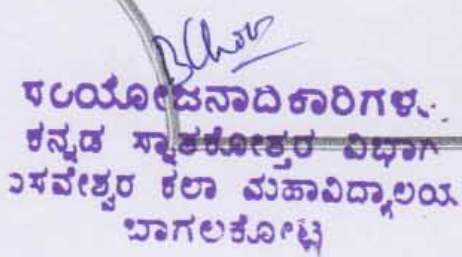 ಸಂಯೋಜನಾದಿಕಾರಿಗಳ.
ಕನ್ನಡ ಸ್ನಾತಕೋತ್ತರ ವಿಭಾಗ
ಬಸವೇಶ್ವರ ಕಲಾ ಮಹಾವಿದ್ಯಾಲಯ
ಬಾಗಲಕೋಟ